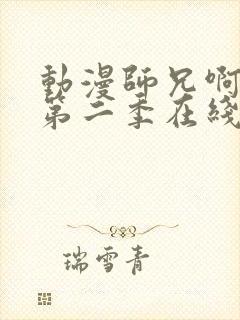 動漫師兄啊
第二季在綫
瑞雪青